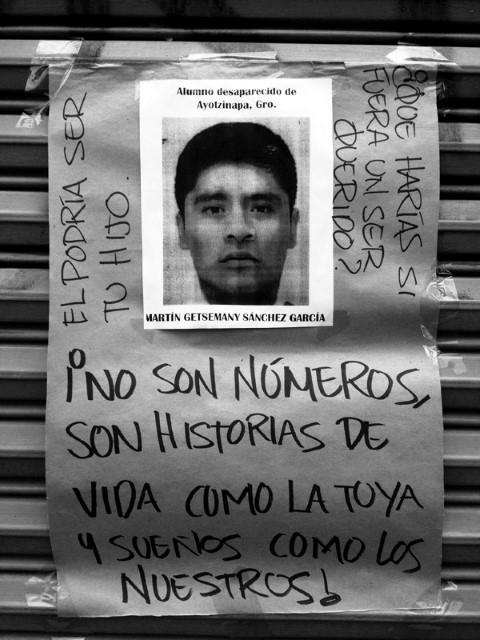 Alumno desaparecido de
Ayotzinapa, Gro.
MARTÍN GETSEMANY SÁNCHEZ GARCÍA
EL PODRÍA SER
TU HIJO.
¿QUE HARÍAS SI
FUERA UN SER
QUERIDO?
¡NO SON NÚMEROS,
SON HISTORIAS DE
VIDA COMO LA TUYA
Y SUEÑOS COMO LOS
NUESTROS!